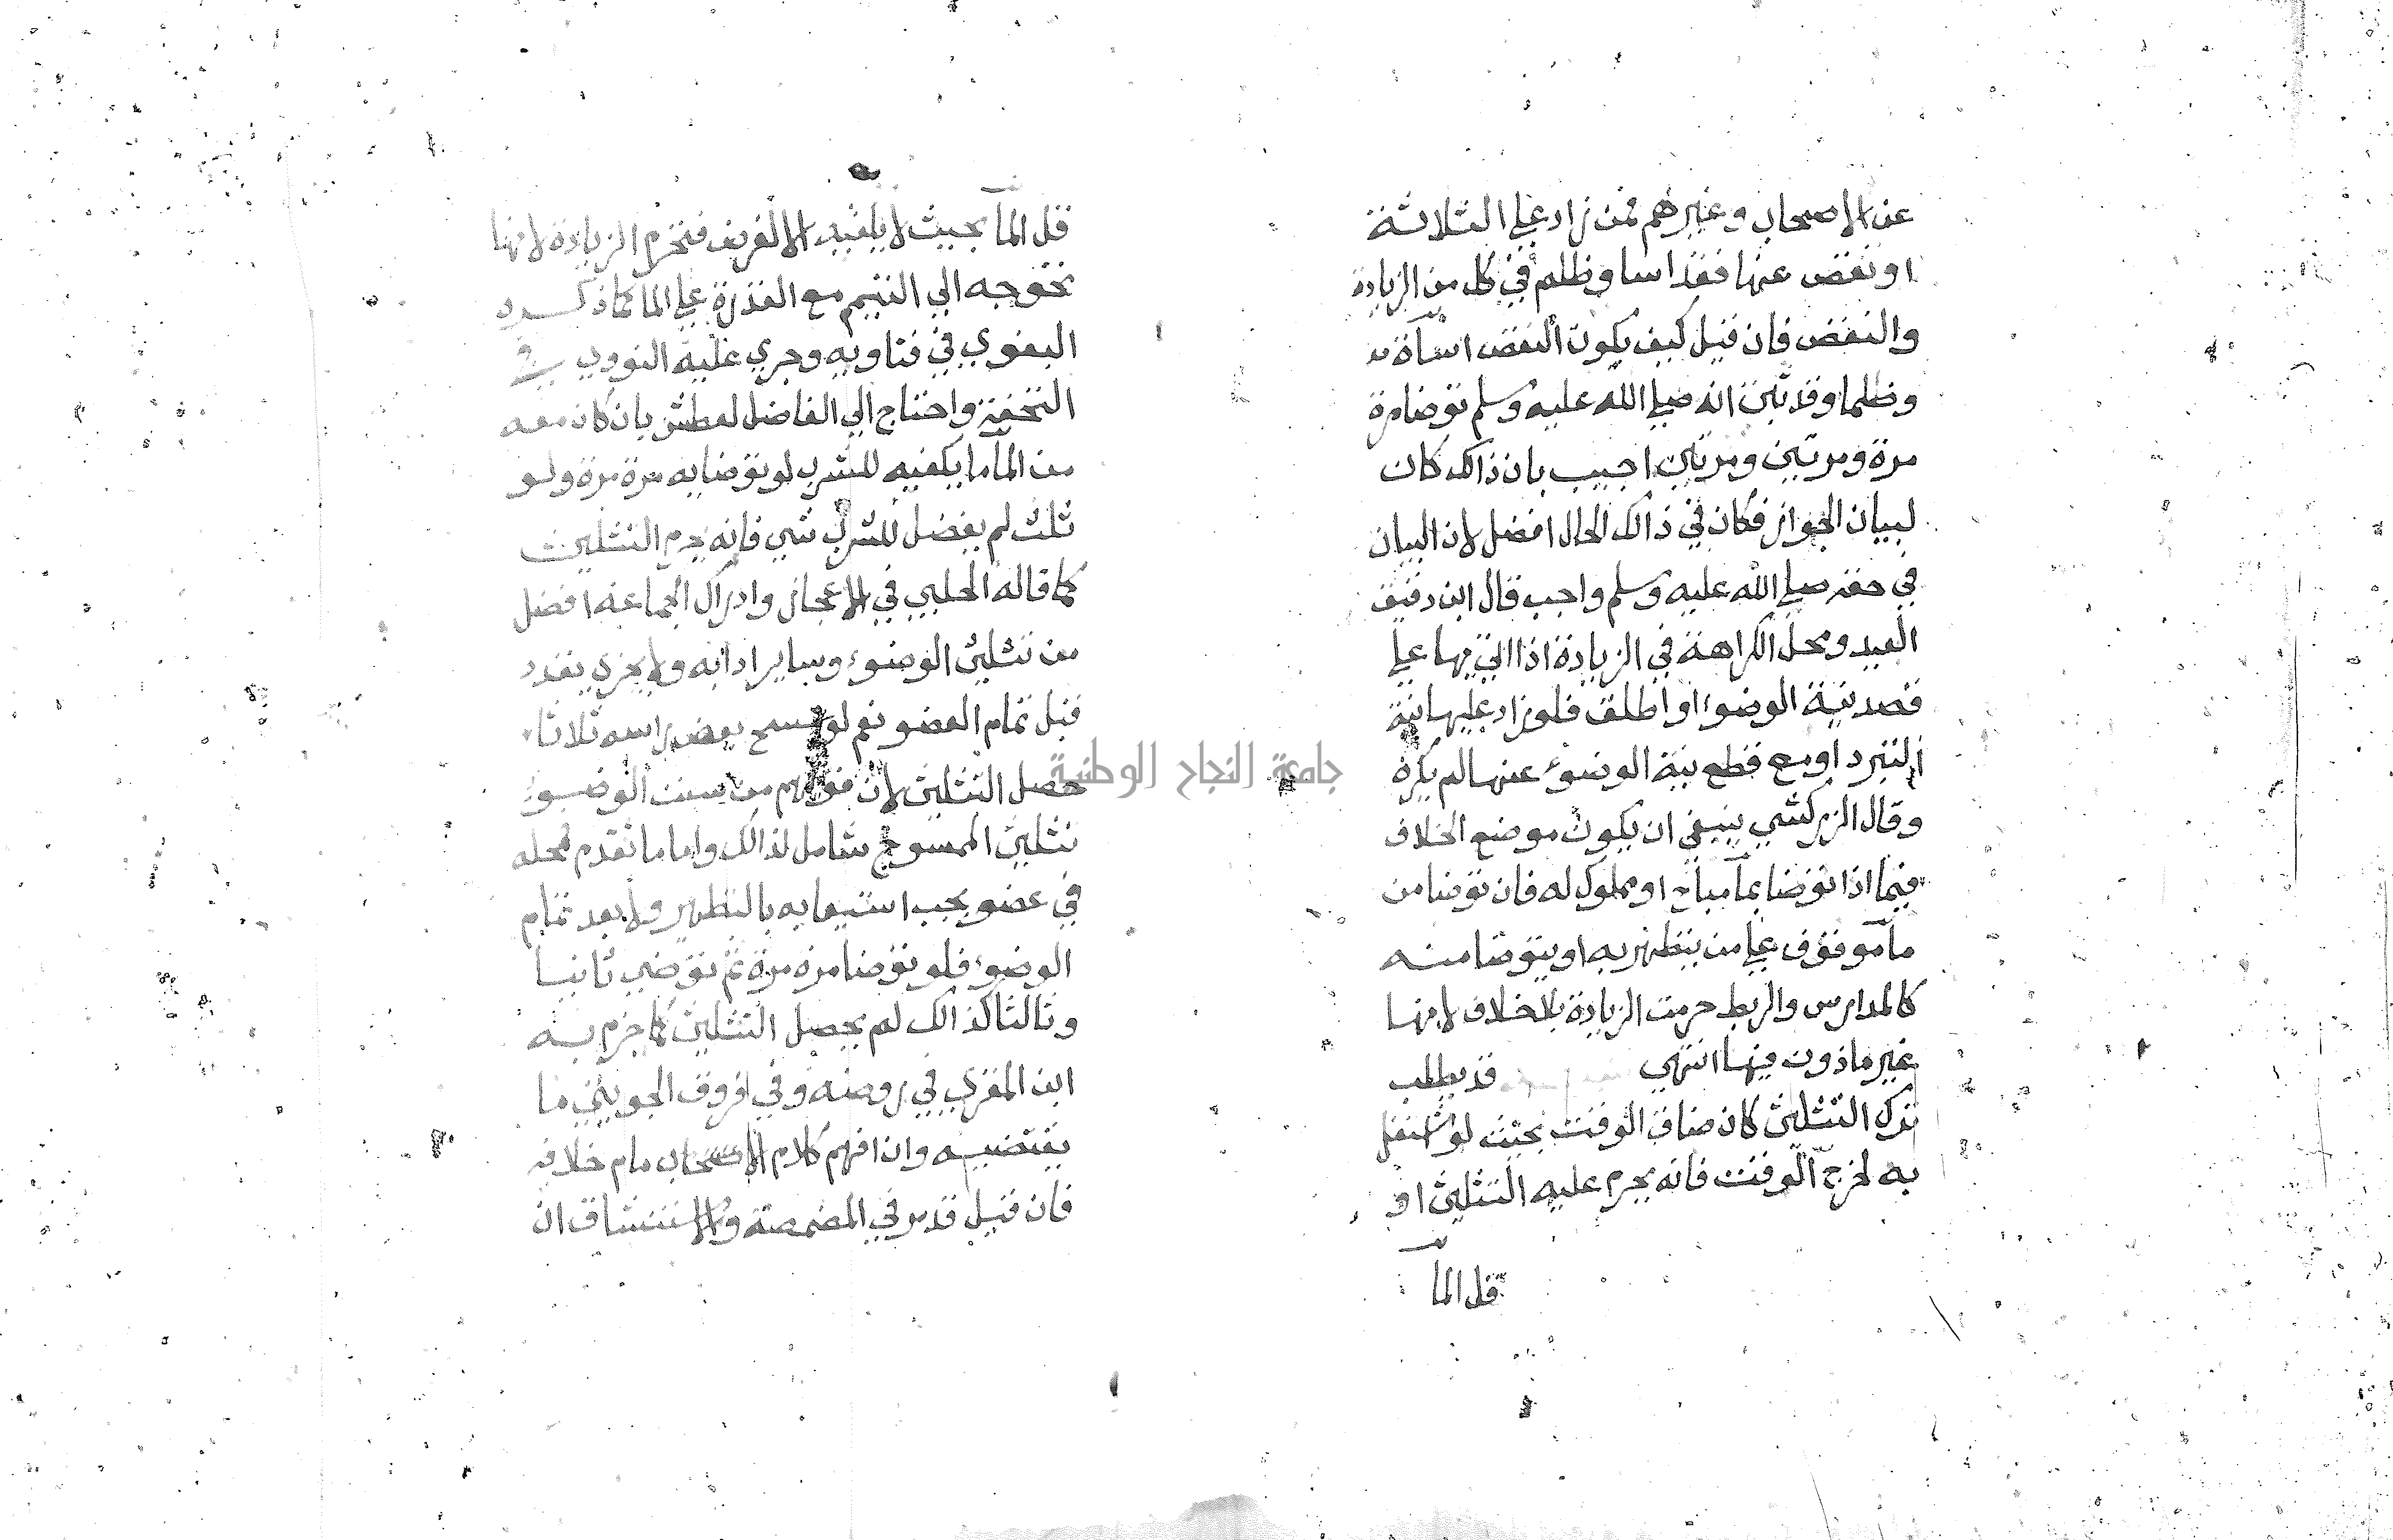 عن الاصحاب وغيرهم فمن زاد علي الثلاثة
او نقص عنها فقد اسا وظلم في كل من الزيادة
والنقص فان قيل كيف يكون النقص اساة
وظلما وقد ثبت انه صلي الله عليه وسلم توضا مرة
مرة ومرتين ومرتين اجيب بان ذالك كان
لبيان الجواز فكان في ذالك الحال افضل لان البيان
في حقه صلي الله عليه وسلم واجب قال ابن دقيق
العيد ومحل الكراهة في الزيادة اذا اتي بها علي
قصد نية الوضوء او اطلق فلو زاد عليها بنية
التبرد او مع قطع نية الوضوء عنها لم يكره
وقال الزركشي ينبغي ان يكون موضع الخلاف
فيما اذا توضا بمآ مباح او مملوك له فان توضا من
مآ موقوف علي من يتطهر به او يتوضا منه
كالمدارس والربط حرمت الزيادة بلا خلاف لانها
غير ماذون فيها انتهي قد يطلب
ترك التثليث كان ضاق الوقت بحيث لو اشتغل
به لخرج الوقت فانه يحرم عليه التثليث او
قل المآ
قل المآ بحيث لا يكفيه الا لفرض فتحرم الزيادة لانها
تحوجه الي التيمم مع القدرة علي الما كما ذكره
البغوي في فتاويه وجري عليه النووي في
التحفة واحتاج الي الفاضل لعطش بان كان معه
من المآ ما يكفيه للشرب لو توضا به مرة مرة ولو
ثلث لم يفضل للشرب شي فانه يحرم التثليث
كما قاله الجلبي في الاعجاز وادراك الجماعة افضل
من تثليث الوضوء وساير ادابه ولا يجزي تعدد
قبل تمام العضو نعم لو مسح بعض راسه ثلاثا
حصل التثليث لان قولهم من سنن الوضوء
تثليث الممسوح شامل لذالك واما ما تقدم فمحله
في عضو يجب استيعابه بالتطهير ولا بعد تمام
الوضوء فلو توضا مرة مرة ثم توضي ثانيا
وثالثا كذالك لم يحصل التثليث كما جزم به
ابن المقري في روضه وفي فروق الجويني ما
يقتضيه وان افهم كلام الاصحاب مام خلافه
فان قيل قد مر في المضمضة والاستنشاق ان
جامعة النجاح الوطنية